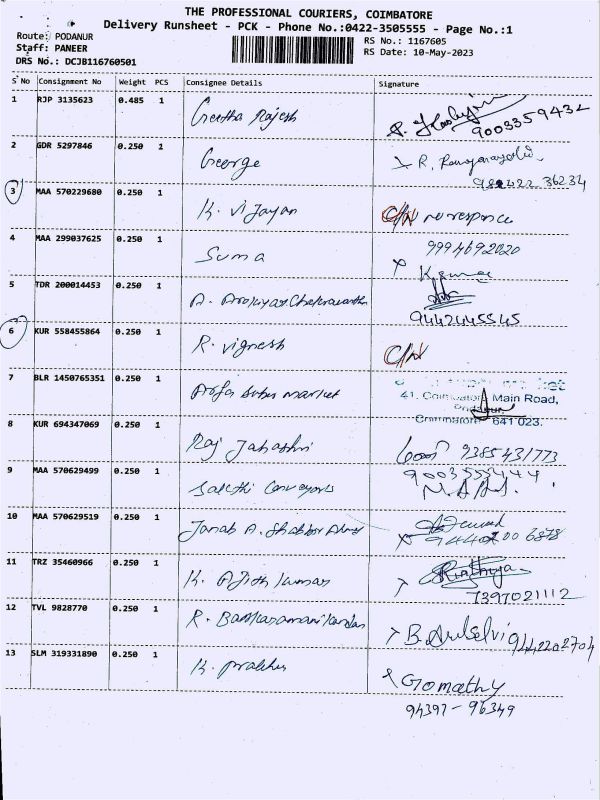 THE PROFESSIONAL COURIERS, COIMBATORE
Delivery Runsheet - PCK - Phone No.:0422-3505555 - Page No.:1
Route: PODANUR
RS No.: 1167605
Staff: PANEER
RS Date: 10-May-2023
DRS No.: DCJB116760501
S No Consignment No Weight PCS Consignee Details Signature
1 RJP 3135623 0.485 1 Geetha Rajesh
9003359432
2 GDR 5297846 0.250 1 George R.
3 MAA 570229680 0.250 1 K. Vijayan C/N no responce
4 MAA 299037625 0.250 1 Suma 9994692020
5 TDR 200014453 0.250 1 A.
9442445545
6 KUR 558455864 0.250 1 R. Vignesh C/N
7 BLR 1450765351 0.250 1 market
41, Main Road,
641 023.
8 KUR 694347069 0.250 1 Raj 9385431773
9 MAA 570629499 0.250 1 Sakthi Conveyors
10 MAA 570629519 0.250 1 Janab A.
11 TRZ 35460966 0.250 1 K. Ajith Kumar
7397021112
12 TVL 9828770 0.250 1 R. B. Arulselvi 9442202704
13 SLM 319331890 0.250 1 K. Prabhu Gomathy
94397-96349